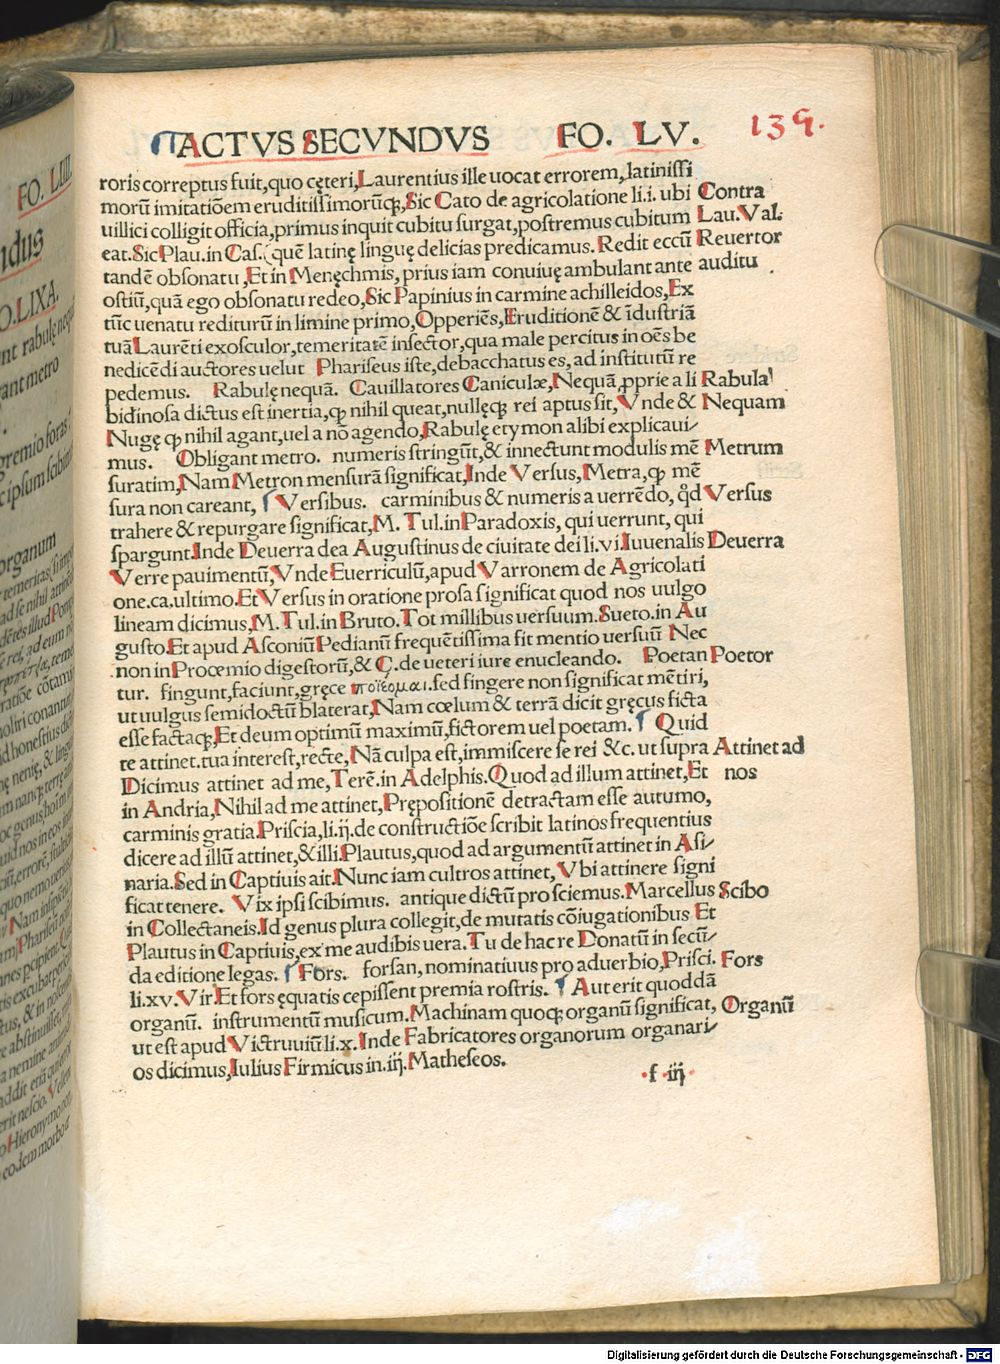 ACTVS SECVNDVS FO. LV.
139.
roris correptus fuit, quo cęteri, Laurentius ille uocat errorem, latinissi
morū imitatiōem eruditissimorūqȝ, Sic Cato de agricolatione li.i. ubi Contra
uillici colligit officia, primus inquit cubitu surgat, postremus cubitum Lau.Val.
eat. Sic Plau. in Cas. (quē latinę linguę delicias predicamus. Redit eccū Reuertor
tandē obsonatu, Et in Menęchmis, prius iam conuiuę ambulant ante auditu
ostiū, quā ego obsonatu redeo, Sic Papinius in carmine achilleidos, Ex
tūc uenatu rediturū in limine primo, Opperiēs, Eruditionē & īdustriā
tuā Laurēti exosculor, temeritatē insector, qua male percitus in oēs be
nedicēdi auctores uelut Phariseus iste, debacchatus es, ad institutū re
pedemus. Rabulę nequā. Cauillatores Caniculæ, Nequā, pprie a li Rabula
bidinosa dictus est inertia, qȝ nihil queat, nullęqȝ rei aptus sit, Vnde & Nequam
Nugę qȝ nihil agant, uel a nō agendo, Rabulę etymon alibi explicaui/
mus. Obligant metro. numeris stringūt, & innectunt modulis mē Metrum
suratim, Nam Metron mensurā significat, Inde Versus, Metra, qȝ mē
sura non careant, ¶ Versibus. carminibus & numeris a uerrēdo, qd Versus
trahere & repurgare significat, M. Tul. in Paradoxis, qui uerrunt, qui
spargunt. Inde Deuerra dea Augustinus de ciuitate dei li.vi. Iuuenalis Deuerra
Verre pauimentū, Vnde Euerriculū, apud Varronem de Agricolati
one.ca. ultimo. Et Versus in oratione prosa significat quod nos uulgo
lineam dicimus, M. Tul. in Bruto. Tot millibus uersuum. Sueto. in Au
gusto. Et apud Asconiū Pedianū frequētissima fit mentio uersuū Nec
non in Procemio digestorū, & C. de ueteri iure enucleando. Poetan Poetor
tur. fingunt, faciunt, gręce ποιέομαι. sed fingere non significat mētiri,
ut uulgus semidoctū blaterat, Nam cœlum & terrā dicit gręcus ficta
esse factaqȝ, Et deum optimū maximū, fictorem uel poetam. ¶ Quid
te attinet. tua interest, recte, Nā culpa est, immiscere se rei &c. ut supra Attinet ad
Dicimus attinet ad me, Terē. in Adelphis. Quod ad illum attinet, Et nos
in Andria, Nihil ad me attinet, Prępositionē detractam esse autumo,
carminis gratia. Priscia, li.ij. de constructiōe scribit latinos frequentius
dicere ad illū attinet, & illi. Plautus, quod ad argumentū attinet in Asi/
naria. Sed in Captiuis ait. Nunc iam cultros attinet, Vbi attinere signi
ficat tenere. Vix ipsi scibimus. antique dictū pro sciemus. Marcellus Scibo
in Collectaneis. Id genus plura collegit, de mutatis cōiugationibus Et
Plautus in Captiuis, ex me audibis uera. Tu de hac re Donatū in secū/
da editione legas. ¶ Fors. forsan, nominatiuus pro aduerbio, Prisci. Fors
li.xv. Vir Et fors ęquatis cepissent premia rostris. ¶ Aut erit quoddā
organū. instrumentū musicum. Machinam quoqȝ organū significat, Organū
ut est apud Victruuiū li.x. Inde Fabricatores organorum organari/
os dicimus, Iulius Firmicus in.iij. Matheseos.
f iij
Digitalisierung gefördert durch die Deutsche Forschungsgemeinschaft - DFG